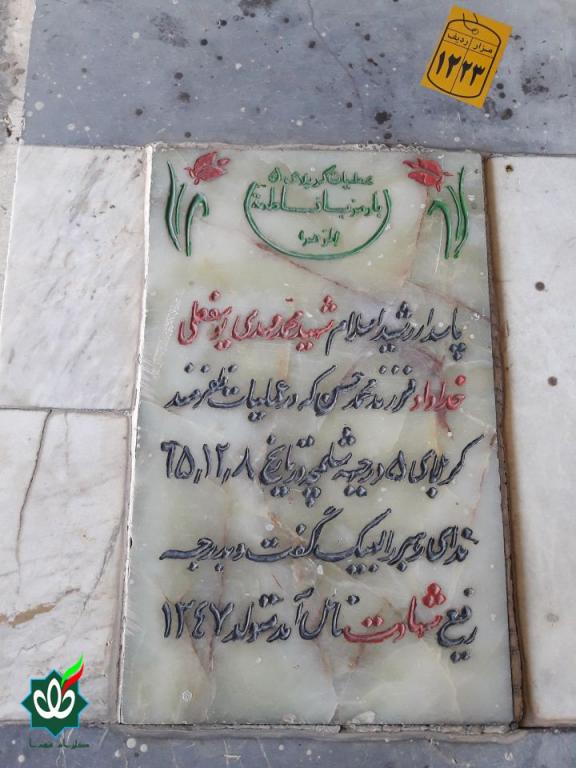 مزار ردیف
۱۲۲۳
عملیات کربلای ۵
با رمز یا فاطمة
الزهرا
پاسدار رشید اسلام شهید محمد مهدی یوسفعلی
خداداد فرزند محمد حسن که در عملیات ظفرمند
کربلای ۵ در جبهه شلمچه در تاریخ ۶۵,۱۲,۸
ندای رهبر را لبیک گفت و به درجه
رفیع شهادت نائل آمد متولد ۱۳۴۷